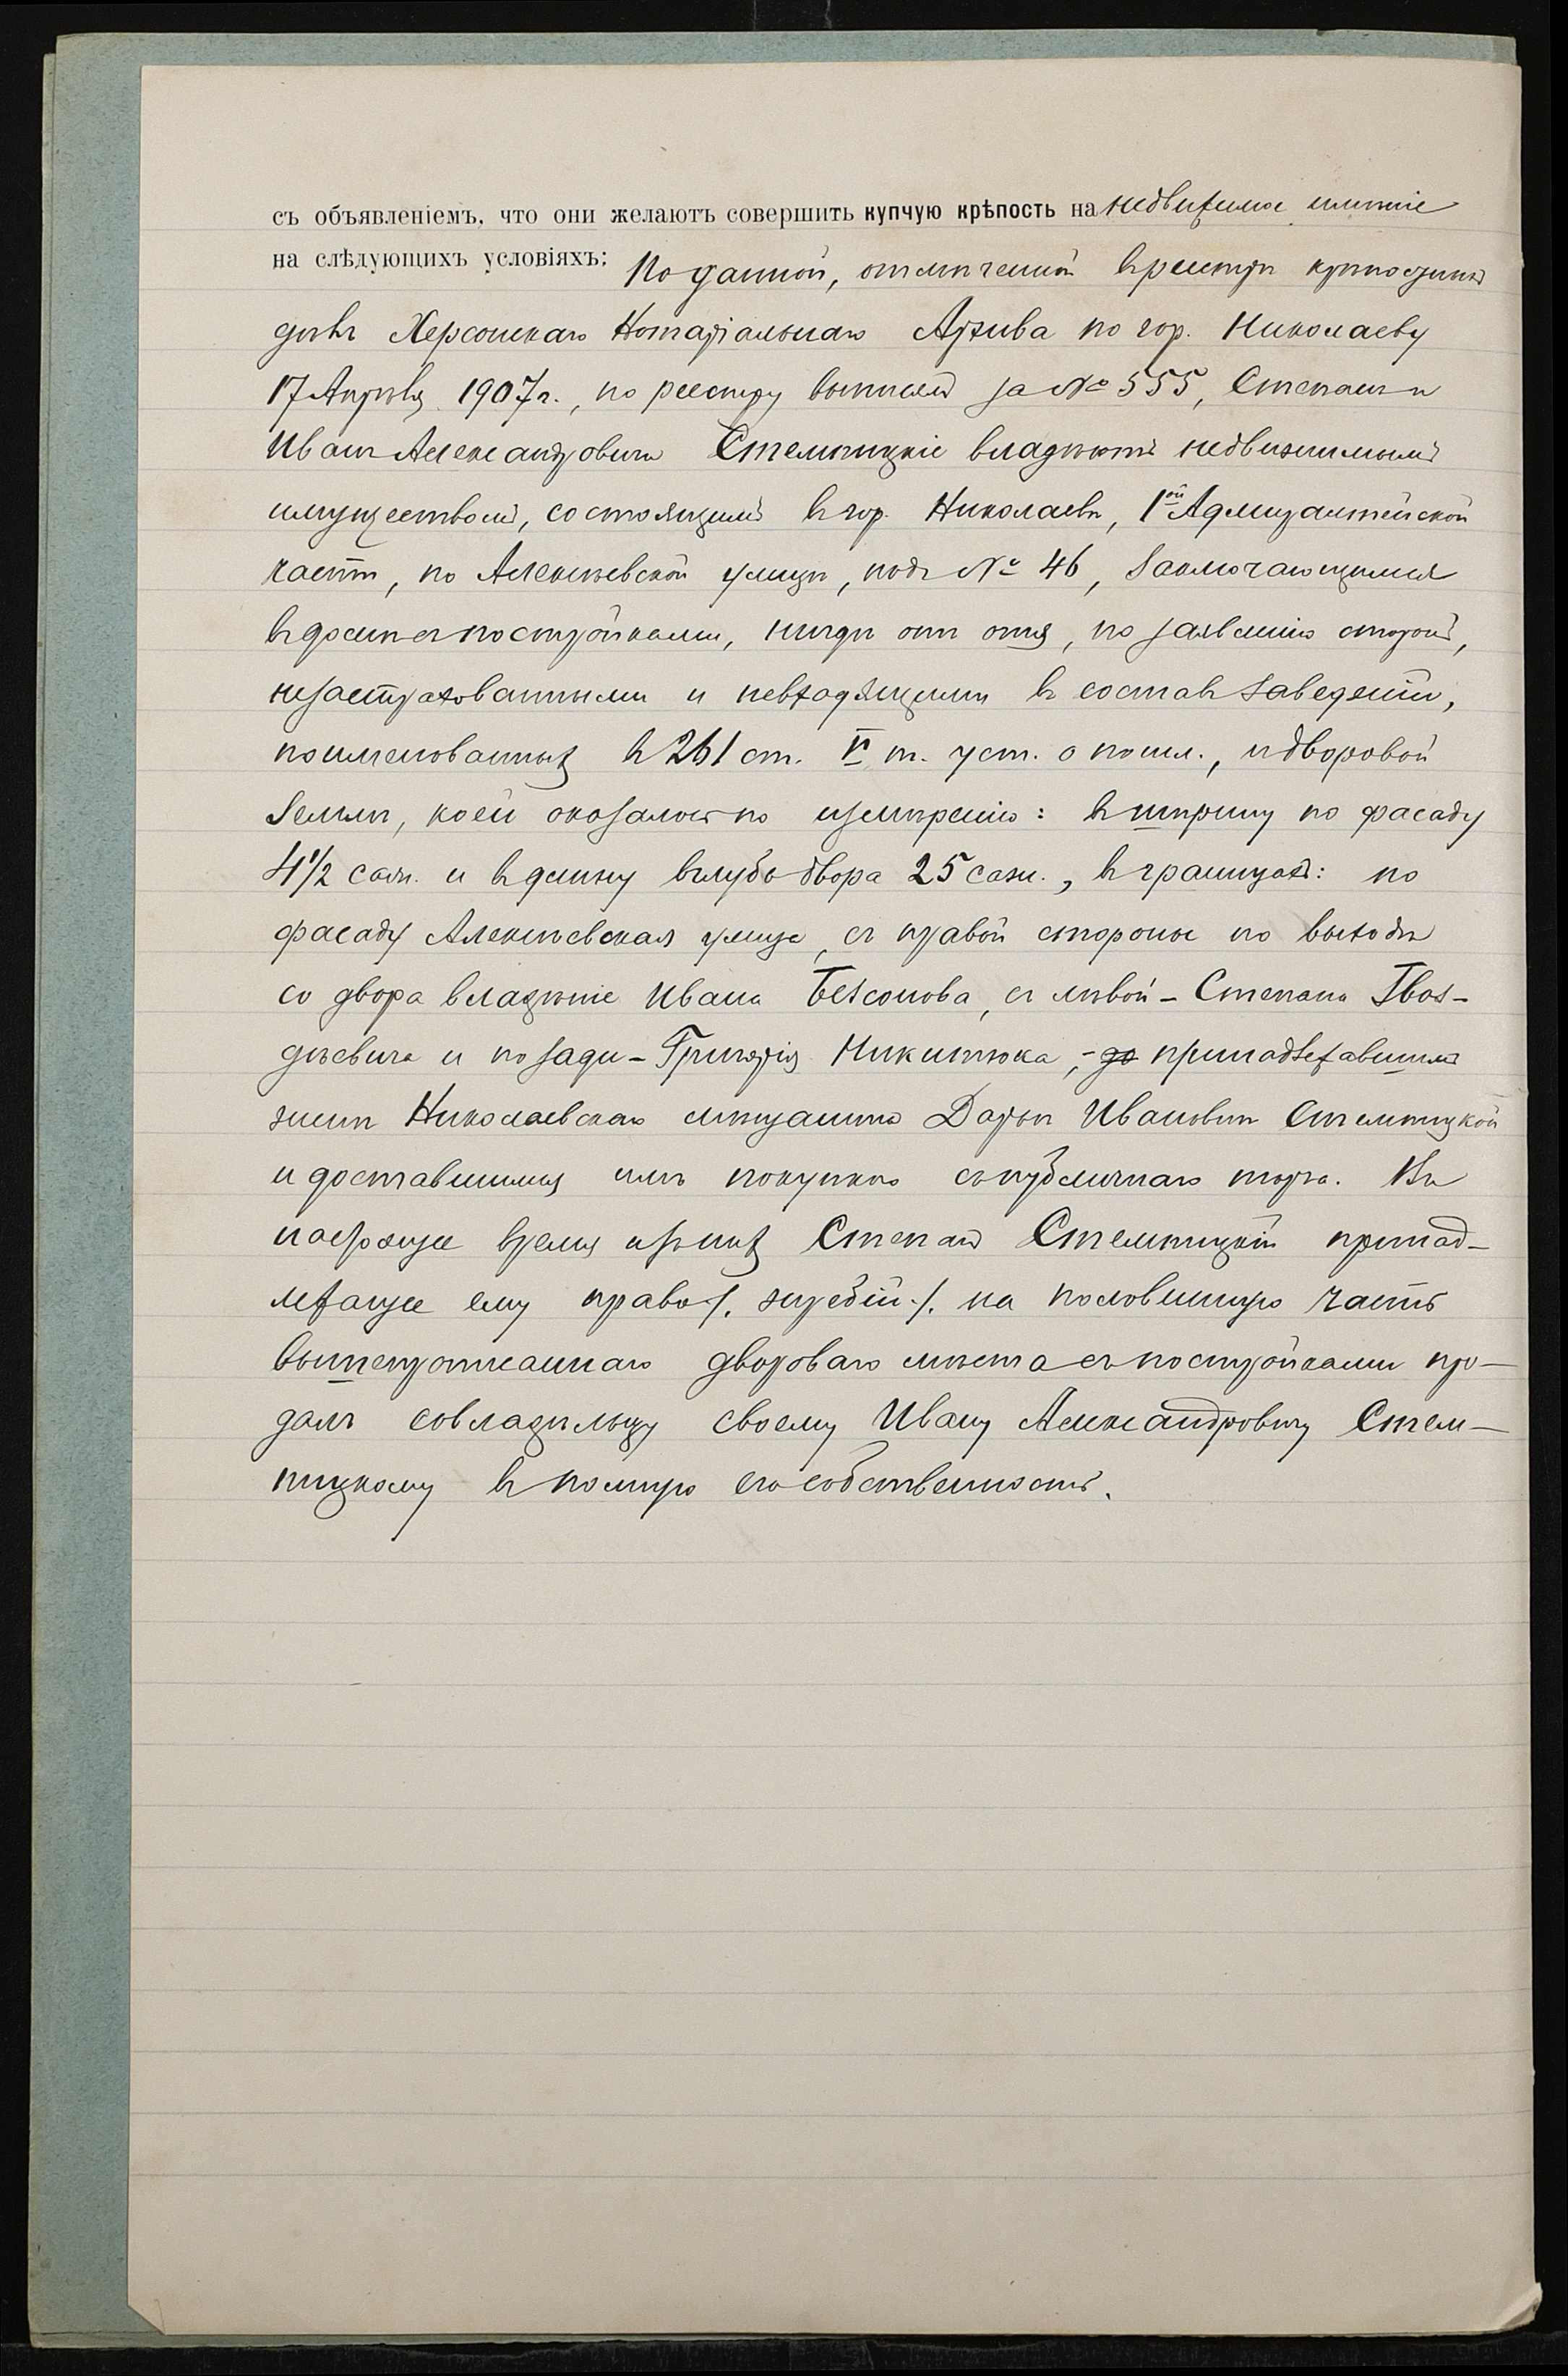 съ объявленіемъ, что они желаютъ совершить купчую крѣпость на недвижимое имѣніе
на слѣдующихъ условіяхъ: По данной, отмѣченной въ реестрѣ крѣпостныхъ
дѣлъ Херсонскаго Нотаріальнаго Архива по гор. Николаеву
17 Апрѣля 1907 г., по реестру выписей за № 555, Степанъ и
Иванъ Александровичи Стемпицкіе владѣютъ недвижимымъ
имуществомъ, состоящимъ въ гор. Николаевѣ, 1ой Адмиралтейской
части, по Алексѣевской улицѣ, подъ № 46, заключающимся
въ домѣ съ постройками, нигдѣ отъ огня, по заявленію сторонъ,
незастрахованными и невходящими въ составъ заведеній,
поименованныхъ въ 261 ст. V т. уст. о пошл., и дворовой
земли, коей оказалось по измѣренію: въ ширину по фасаду
4 1/2 саж. и въ длину вглубь двора 25 саж., въ границахъ: по
фасаду Алексѣевская улица, съ правой стороны по выходѣ
со двора владѣніе Ивана Безсонова, съ лѣвой - Степана Гвоз-
дѣевича и позади - Григорія Никитюка, - до принадлежавшимъ
женѣ Николаевскаго мѣщанина Дарьи Ивановнѣ Стемпицкой
и доставшимся имъ покупкою съ публичнаго торга. Въ
настоящее время изъ нихъ Степанъ Стемпицкій принад-
лежащее ему право /. жребій ./. на половинную часть
вышепрописаннаго двороваго мѣста съ постройками про-
далъ совладѣльцу своему Ивану Александровичу Стем-
пицкому въ полную его собственность.